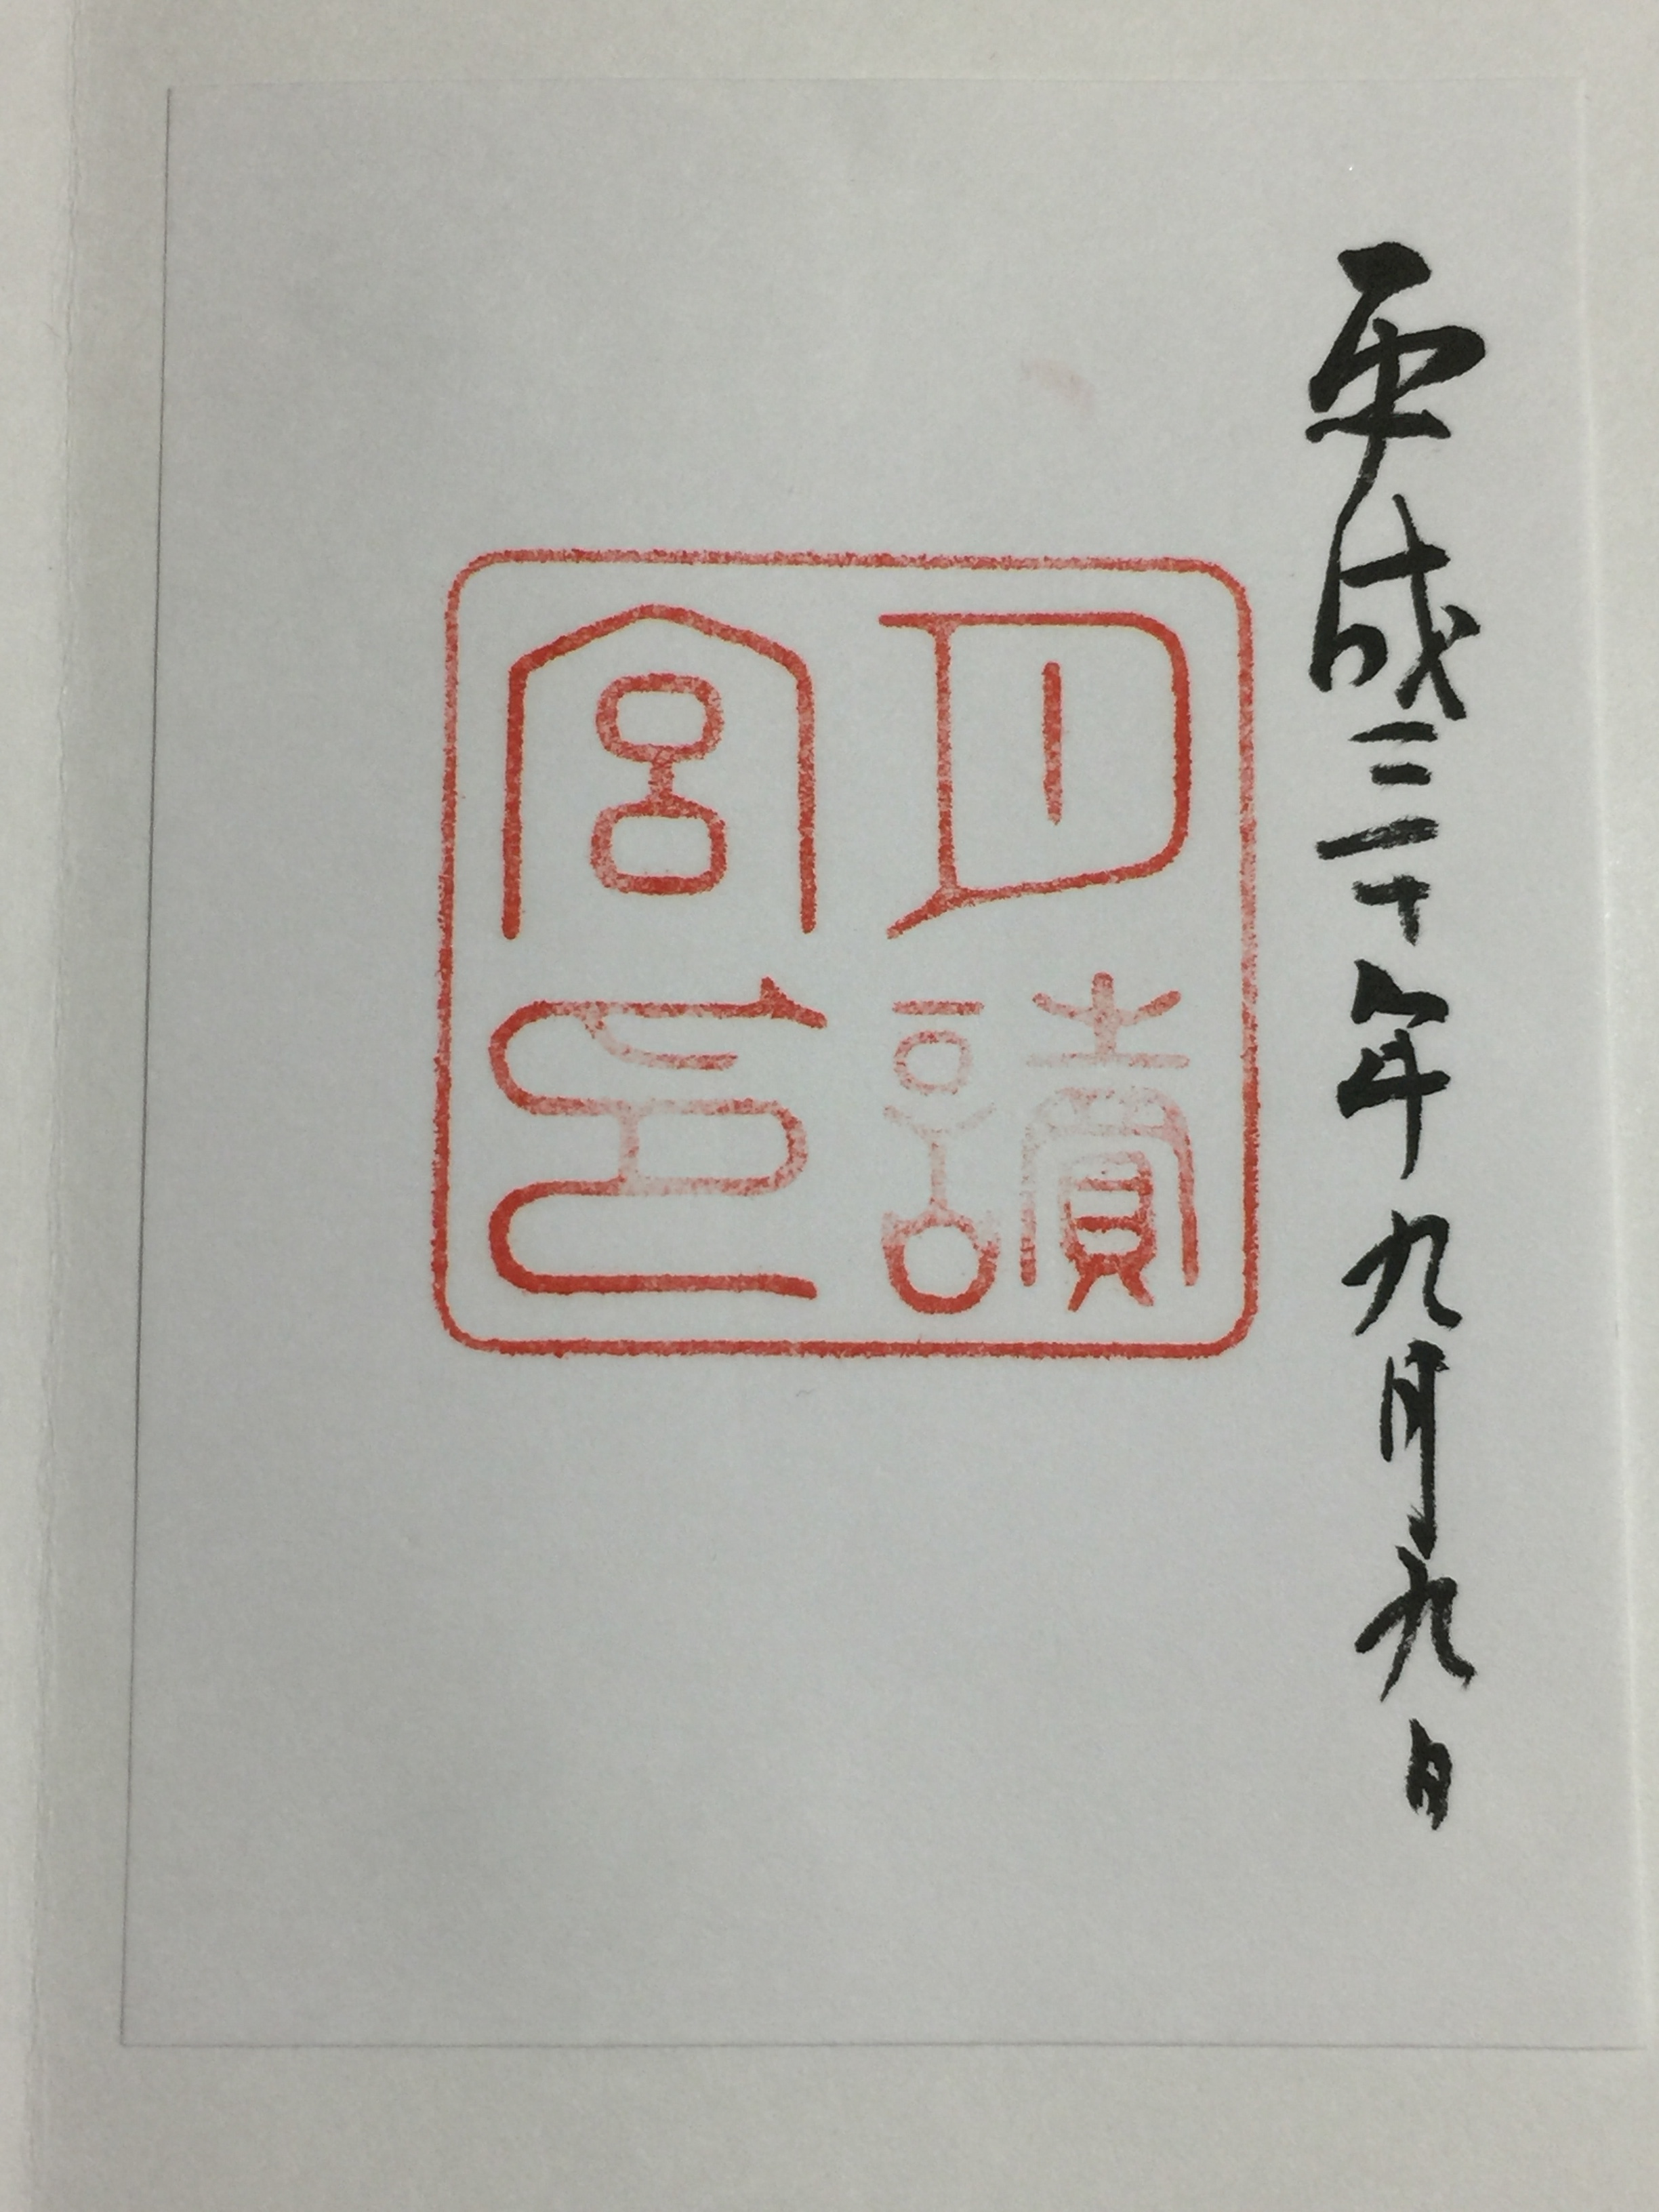 平成三十年九月九日
月讀
宮印